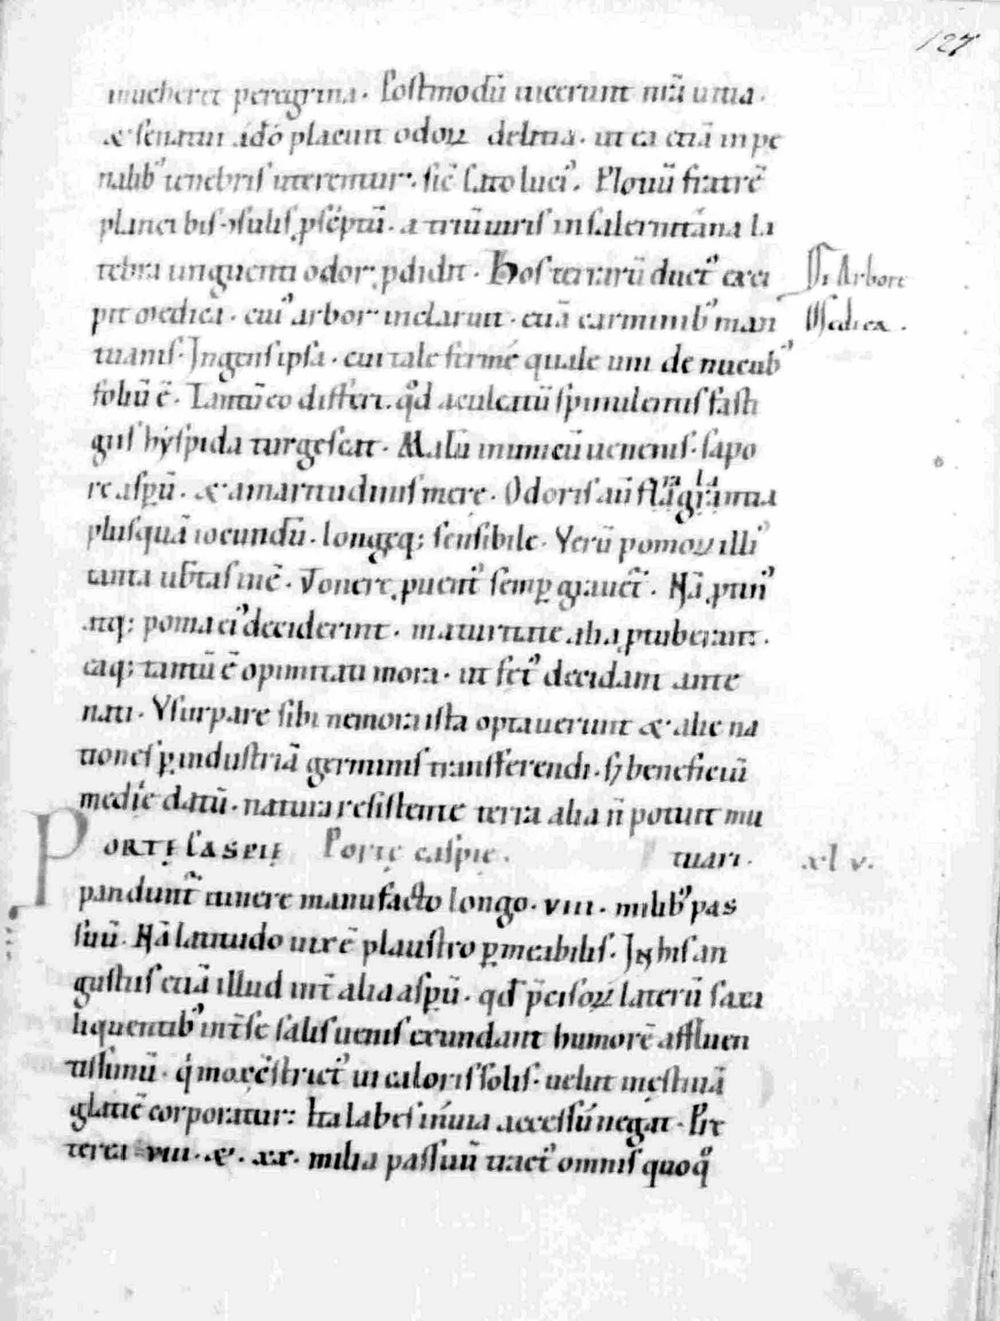 127
inueheret peregrina. Postmodū uicerunt nr̄a uitia.
& senatui ádō placuit odoꝝ delitia. ut ea etiā in pe
nalib' tenebris uteremur. sic̄ satio luci'. Plotiū fratrē
planci bis ꝯsulis ꝓsc̄ptū. a triū uiris in salernitána la
tebra unguenti odor ꝓdidit. Hos terrarū duct' exci
pit Medica. cui' arbor inclaruit. etiā carminib' man
tuanis. Ingens ipsa. cui tale fermé quale uni de nucub'
foliū ē. Tantū eo differt. qd̄ aculeatū spinulentis fasti
giis hyspida turgescit. Malū inimicū uenenis. sapo
re asꝑū. & amaritudinis mere. Odoris aū flagrantia
plusquā iocundū. longeq; sensibile. Verū pomoꝝ illi
tanta ub̄tas inē. V́t onere ꝓuent' semꝑ grauet̄. Nā ꝓtin'
atq; poma ei' deciderint. maturitate alia ꝓtuberant.
eaq; tantū ē opimitati mora. ut fet' decidant ante
nati. Vsurpare sibi nemora ista optauerunt & alie na
tiones ꝑ industriā germinis transferendi. s; beneficiū
medię datū. natura resistente terra alia n̄ potuit mu
tuari.
De Arbore
Medica.
PORTĘ CASPIĘ Portę caspię. xlv.
pandunt̄ itinere manufacto longo. viii. milib' pas
suū. Nā latitudo uix ē plaustro ꝑmeabilis. In his an
gustiis etiā illud int̄ alia asꝑū. qd̄ p̄cisoꝝ laterū saxa
liquentib' int̄ se salis uenis exundant humorē affluen
tissimū. q̇ mox c̄strict' ui caloris solis. uelut in ęstiuā
glaciē corporatur: Ita labes inuia accessū negat. Pre
terea viii. & .xx. milia passuū tract' omnis quoq̊